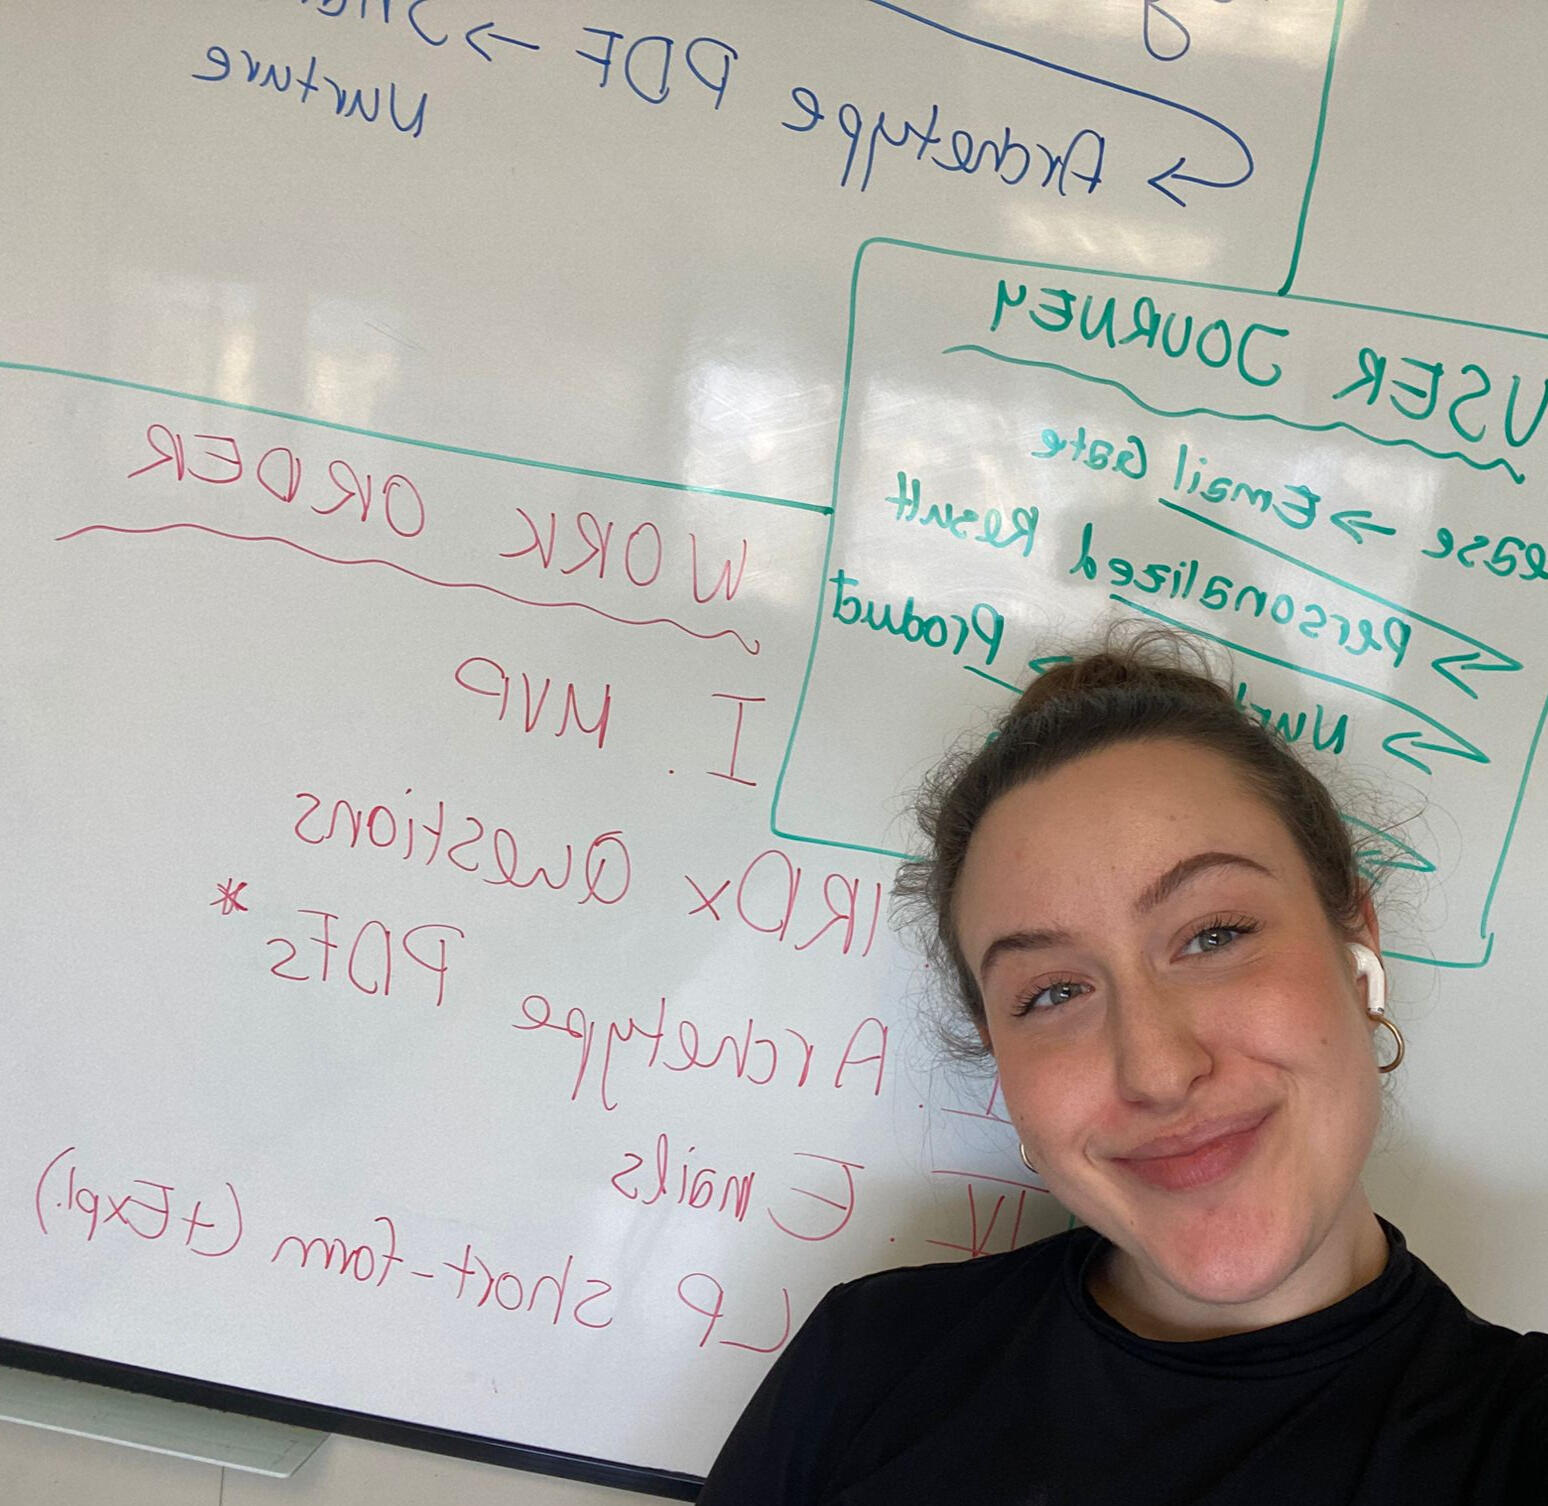 → Archetype PDF →
Nurture
USER JOURNEY
→ Email Gate
→ Personalized Result
→ Product
WORK ORDER
I. MVP
IRDx Questions
Archetype PDFs *
IV. Emails
LP short-form (+Expl.)